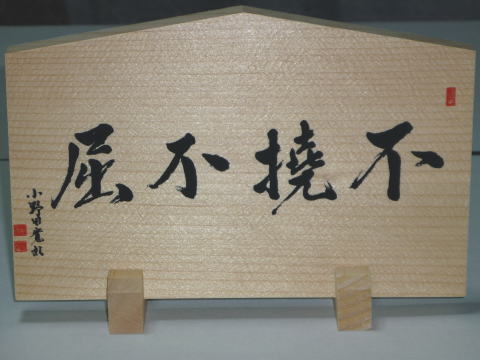 不撓不屈
小野田寛郎